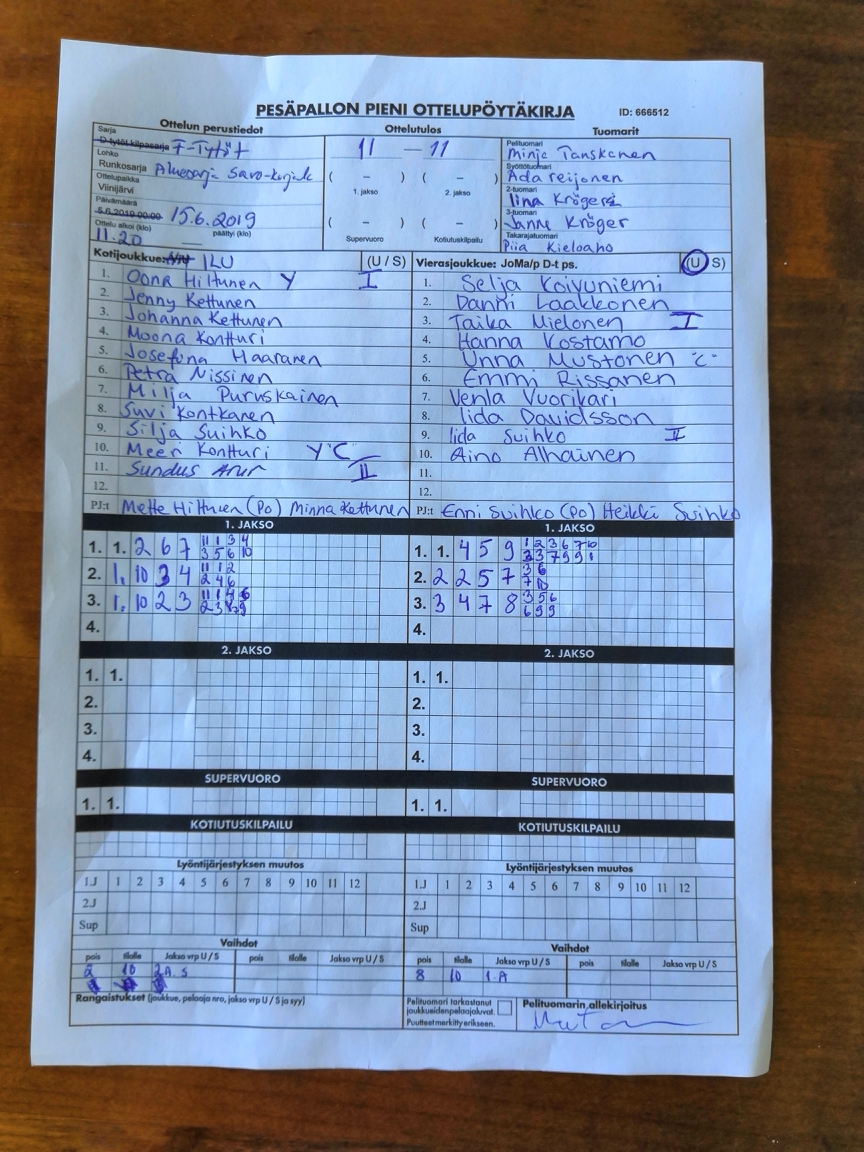 PESÄPALLON PIENI OTTELUPÖYTÄKIRJA ID: 666512
Ottelun perustiedot Ottelutulos Tuomarit
Sarja
D-tytöt kilpasarja F-Tytöt
Lohko
Runkosarja Aluesarja Savo-Karjala
Ottelupaikka
Viinijärvi
Päivämäärä
5.6.2019 00:00 15.6.2019
Ottelu alkoi (klo) päättyi (klo)
11.20
11 — 11
( – ) ( – )
1. jakso 2. jakso
( – ) ( – )
Supervuoro Kotiutuskilpailu
Pelituomari
Minja Tanskanen
Syöttötuomari
Ada reijonen
2-tuomari
Iina Kröger
3-tuomari
Janne Kröger
Takarajatuomari
Piia Kieloaho
Kotijoukkue: ILU (U / S)
1. Oona Hiltunen Y I
2. Jenny Kettunen
3. Johanna Kettunen
4. Moona Kontturi
5. Josefina Haaranen
6. Petra Nissinen
7. Milja Puruskainen
8. Suvi Kontkanen
9. Silja Suihko
10. Meeri Kontturi Y"C II
11. Sundus
12.
PJ:t Mette Hiltunen (Po) Minna Kettunen
Vierasjoukkue: JoMa/p D-t ps. (U S)
1. Selja Koivuniemi
2. Danni Laakkonen
3. Taika Mielonen I
4. Hanna Kostamo
5. Unna Mustonen "C"
6. Emmi Rissanen
7. Venla Vuorikari
8. Iida Davidsson
9. Iida Suihko II
10. Aino Alhainen
11.
12.
PJ:t Enni Suihko (Po) Heikki Suihko
1. JAKSO
1. 1. 2 6 7
11 1 3 4
3 5 6 10
2. 1. 10 3 4
11 1 2
2 4 6
3. 1. 10 2 3
4.
1. JAKSO
1. 1. 4 5 9
1 2 3 6 7 10
2. 2 2 5 7
3 6
7 10
3. 3 4 7 8
3 5 6
6 9 9
4.
2. JAKSO
1. 1.
2.
3.
4.
2. JAKSO
1. 1.
2.
3.
4.
SUPERVUORO SUPERVUORO
1. 1. 1. 1.
KOTIUTUSKILPAILU KOTIUTUSKILPAILU
Lyöntijärjestyksen muutos Lyöntijärjestyksen muutos
1.J 1 2 3 4 5 6 7 8 9 10 11 12 1.J 1 2 3 4 5 6 7 8 9 10 11 12
2.J 2.J
Sup Sup
Vaihdot Vaihdot
pois tilalle Jakso vrp U / S pois tilalle Jakso vrp U / S pois tilalle Jakso vrp U / S pois tilalle Jakso vrp U / S
2 10 2A. S 8 10 1.A
Rangaistukset (joukkue, pelaaja nro, jakso vrp U / S ja syy)
Pelituomari tarkastanut
joukkueiden pelaajaluvat.
Puutteet merkitty erikseen.
Pelituomarin allekirjoitus